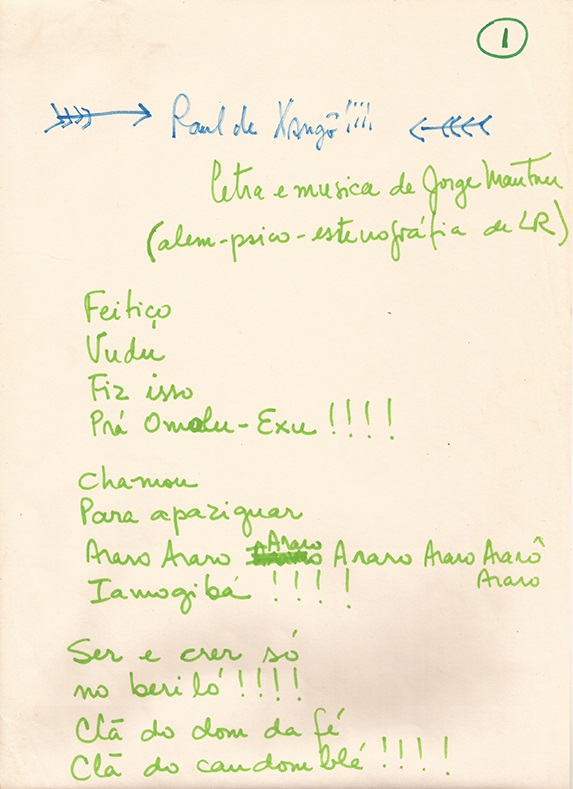 1
Raul de Xangô!!!!
letra e musica de Jorge Mautner
(alem-psico-estenográfia de LR)
Feitiço
Vudu
Fiz isso
Prá Omolu-Exu !!!!
Chamou
Para apaziguar
Araro Araro Araro Araro Araro Ararô
Iamogibá !!!! Araro
Ser e crer só
no beriló!!!!
Clã do dom da fé
Clã do candomblé!!!!